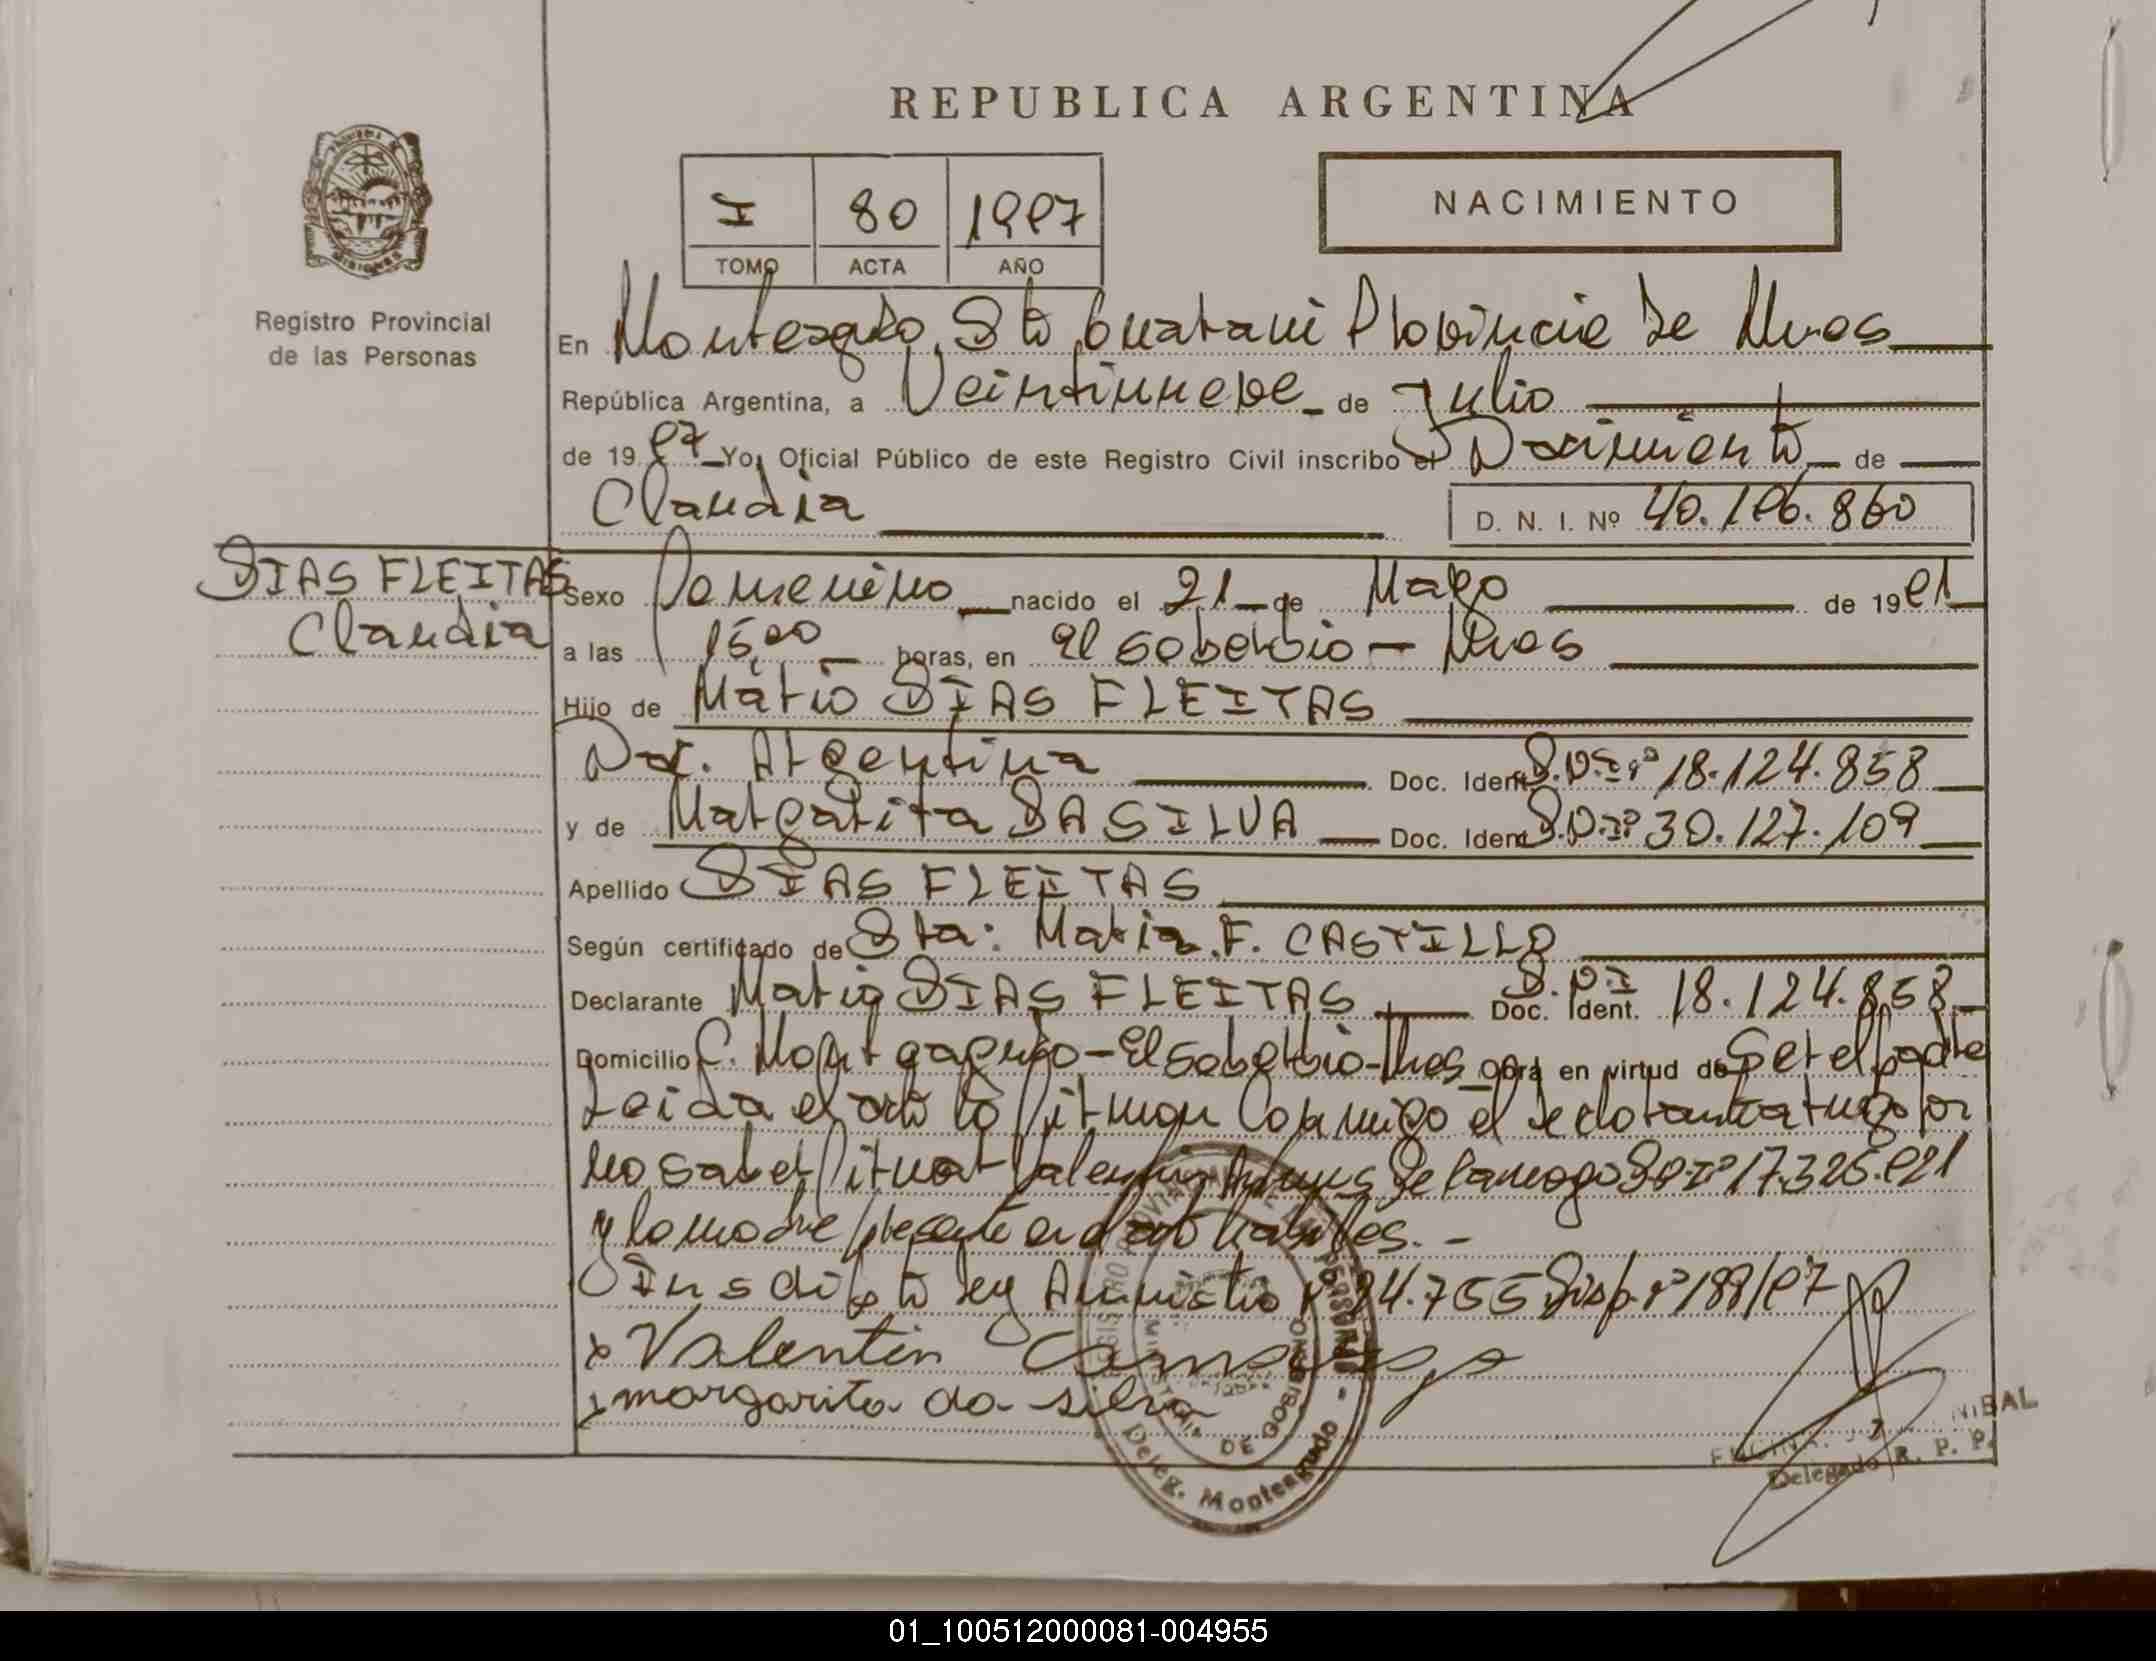 REPUBLICA ARGENTINA
I 80 1997
TOMO ACTA AÑO
NACIMIENTO
MISIONES
Registro Provincial
de las Personas
En Monteagudo, Dto Guarani Provincia de Mnes
República Argentina, a Veintinueve de Julio
de 1997 Yo, Oficial Público de este Registro Civil inscribo el Nacimiento de
Claudia
D. N. I. Nº 40.196.860
DIAS FLEITAS
Claudia
Sexo Femenino nacido el 21 de Mayo de 1991
a las 15,00 horas, en El Soberbio - Mnes
Hijo de Mario DIAS FLEITAS
Nac. Argentina Doc. Ident. D.N.I nº 18.124.858
y de Margarita DA SILVA Doc. Ident D.N.Iº 30.127.109
Apellido DIAS FLEITAS
Según certificado de Dra: Maria F. CASTILLO
Declarante Mario DIAS FLEITAS Doc. Ident. D.N.I 18.124.858
Domicilio C. Monteagudo - El Soberbio - Mnes obra en virtud de Ser el padre
Leida el acta la firman Conmigo el declarante a ruego por
no saber firmar Valentin de Camargo D.N.Iº 17.325.921
y la madre presente en el acto
Inscripto Ley Amnistia nº 24.755 Disp. nº 199/97
x Valentin Camargo
x margarita da silva
REGISTRO PROVINCIAL DE LAS PERSONAS
MINISTERIO DE GOBIERNO
Deleg. Monteagudo
NIBAL
Delegado R. P. P.
01_100512000081-004955